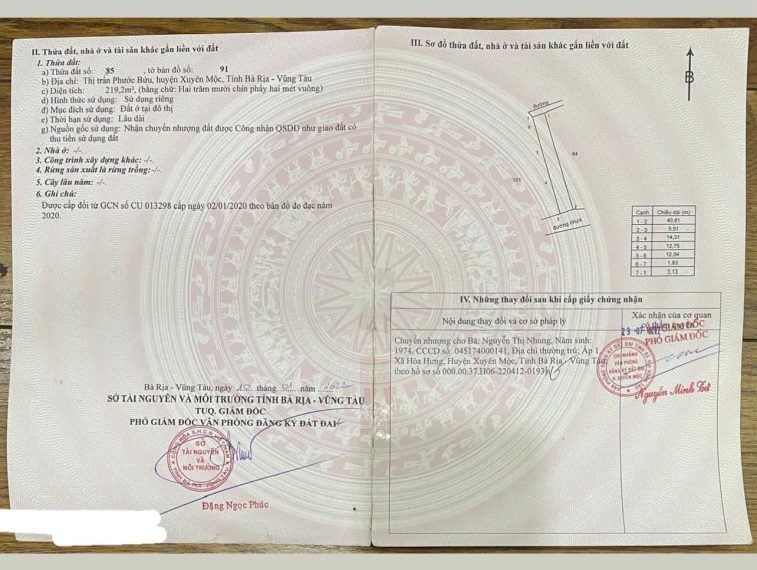 II. Thửa đất, nhà ở và tài sản khác gắn liền với đất
1. Thửa đất:
a) Thửa đất số: 85, tờ bản đồ số: 91
b) Địa chỉ: Thị trấn Phước Bửu, huyện Xuyên Mộc, Tỉnh Bà Rịa - Vũng Tàu
c) Diện tích: 219,2m², (bằng chữ: Hai trăm mười chín phẩy hai mét vuông)
d) Hình thức sử dụng: Sử dụng riêng
đ) Mục đích sử dụng: Đất ở tại đô thị
e) Thời hạn sử dụng: Lâu dài
g) Nguồn gốc sử dụng: Nhận chuyển nhượng đất được Công nhận QSDĐ như giao đất có
thu tiền sử dụng đất
2. Nhà ở: -/-
3. Công trình xây dựng khác: -/-
4. Rừng sản xuất là rừng trồng: -/-
5. Cây lâu năm: -/-
6. Ghi chú:
Được cấp đổi từ GCN số CU 013298 cấp ngày 02/01/2020 theo bản đồ đo đạc năm
2020.
Bà Rịa - Vũng Tàu, ngày 10 tháng 01 năm 2022
SỞ TÀI NGUYÊN VÀ MÔI TRƯỜNG TỈNH BÀ RỊA - VŨNG TÀU
TUQ. GIÁM ĐỐC
PHÓ GIÁM ĐỐC VĂN PHÒNG ĐĂNG KÝ ĐẤT ĐAI
SỞ
TÀI NGUYÊN
VÀ
MÔI TRƯỜNG
Đặng Ngọc Phúc
III. Sơ đồ thửa đất, nhà ở và tài sản khác gắn liền với đất
B
đường
101
84
đường nhựa
Cạnh Chiều dài (m)
1 - 2 40,81
2 - 3 5,51
3 - 4 14,31
4 - 5 12,75
5 - 6 12,04
6 - 7 1,83
7 - 1 5,13
IV. Những thay đổi sau khi cấp giấy chứng nhận
Nội dung thay đổi và cơ sở pháp lý
Xác nhận của cơ quan
có thẩm quyền
Chuyển nhượng cho Bà: Nguyễn Thị Nhung, Năm sinh:
1974, CCCD số: 045174000141, Địa chỉ thường trú: Ấp 1,
Xã Hòa Hưng, Huyện Xuyên Mộc, Tỉnh Bà Rịa - Vũng Tàu
theo hồ sơ số 000.00.37.H06-220412-0193
GIÁM ĐỐC
PHÓ GIÁM ĐỐC
CHI NHÁNH
VĂN PHÒNG
ĐĂNG KÝ ĐẤT ĐAI
H.XUYÊN MỘC
Nguyễn Minh Tư